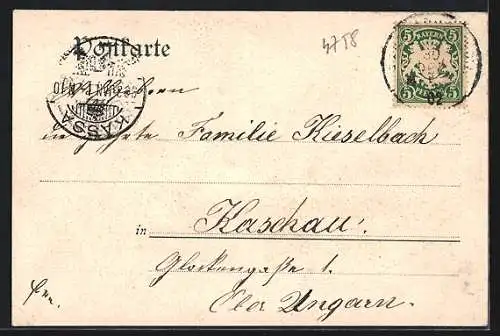 Postkarte
4758
5 BAYERN 5
5 5
02
KASSA
Familie Kieselbach
in Kaschau.
Glockengaße 1.
Ober Ungarn.